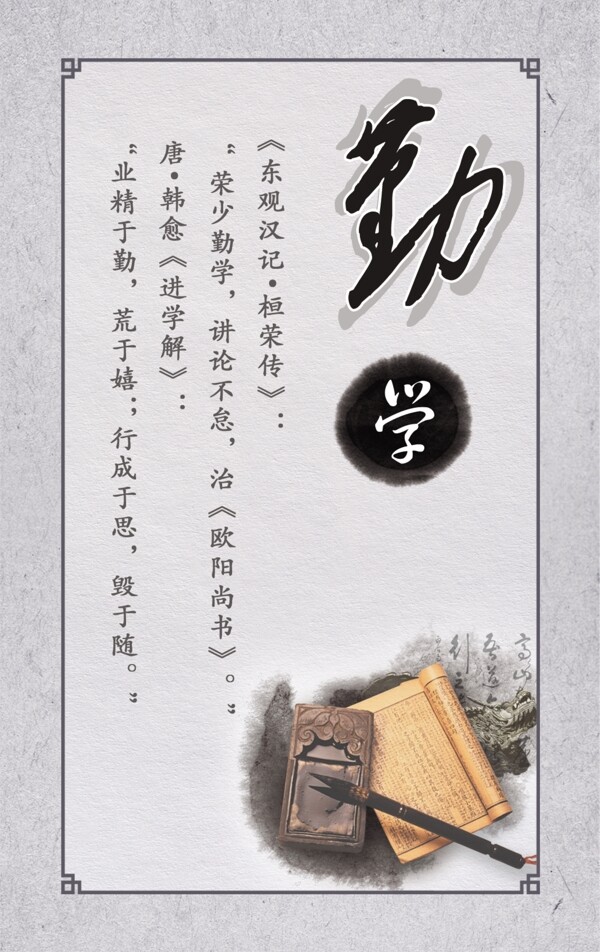 勤
学
《东观汉记•桓荣传》：
“荣少勤学，讲论不怠，治《欧阳尚书》。”
唐•韩愈《进学解》：
“业精于勤，荒于嬉；行成于思，毁于随。”
高山